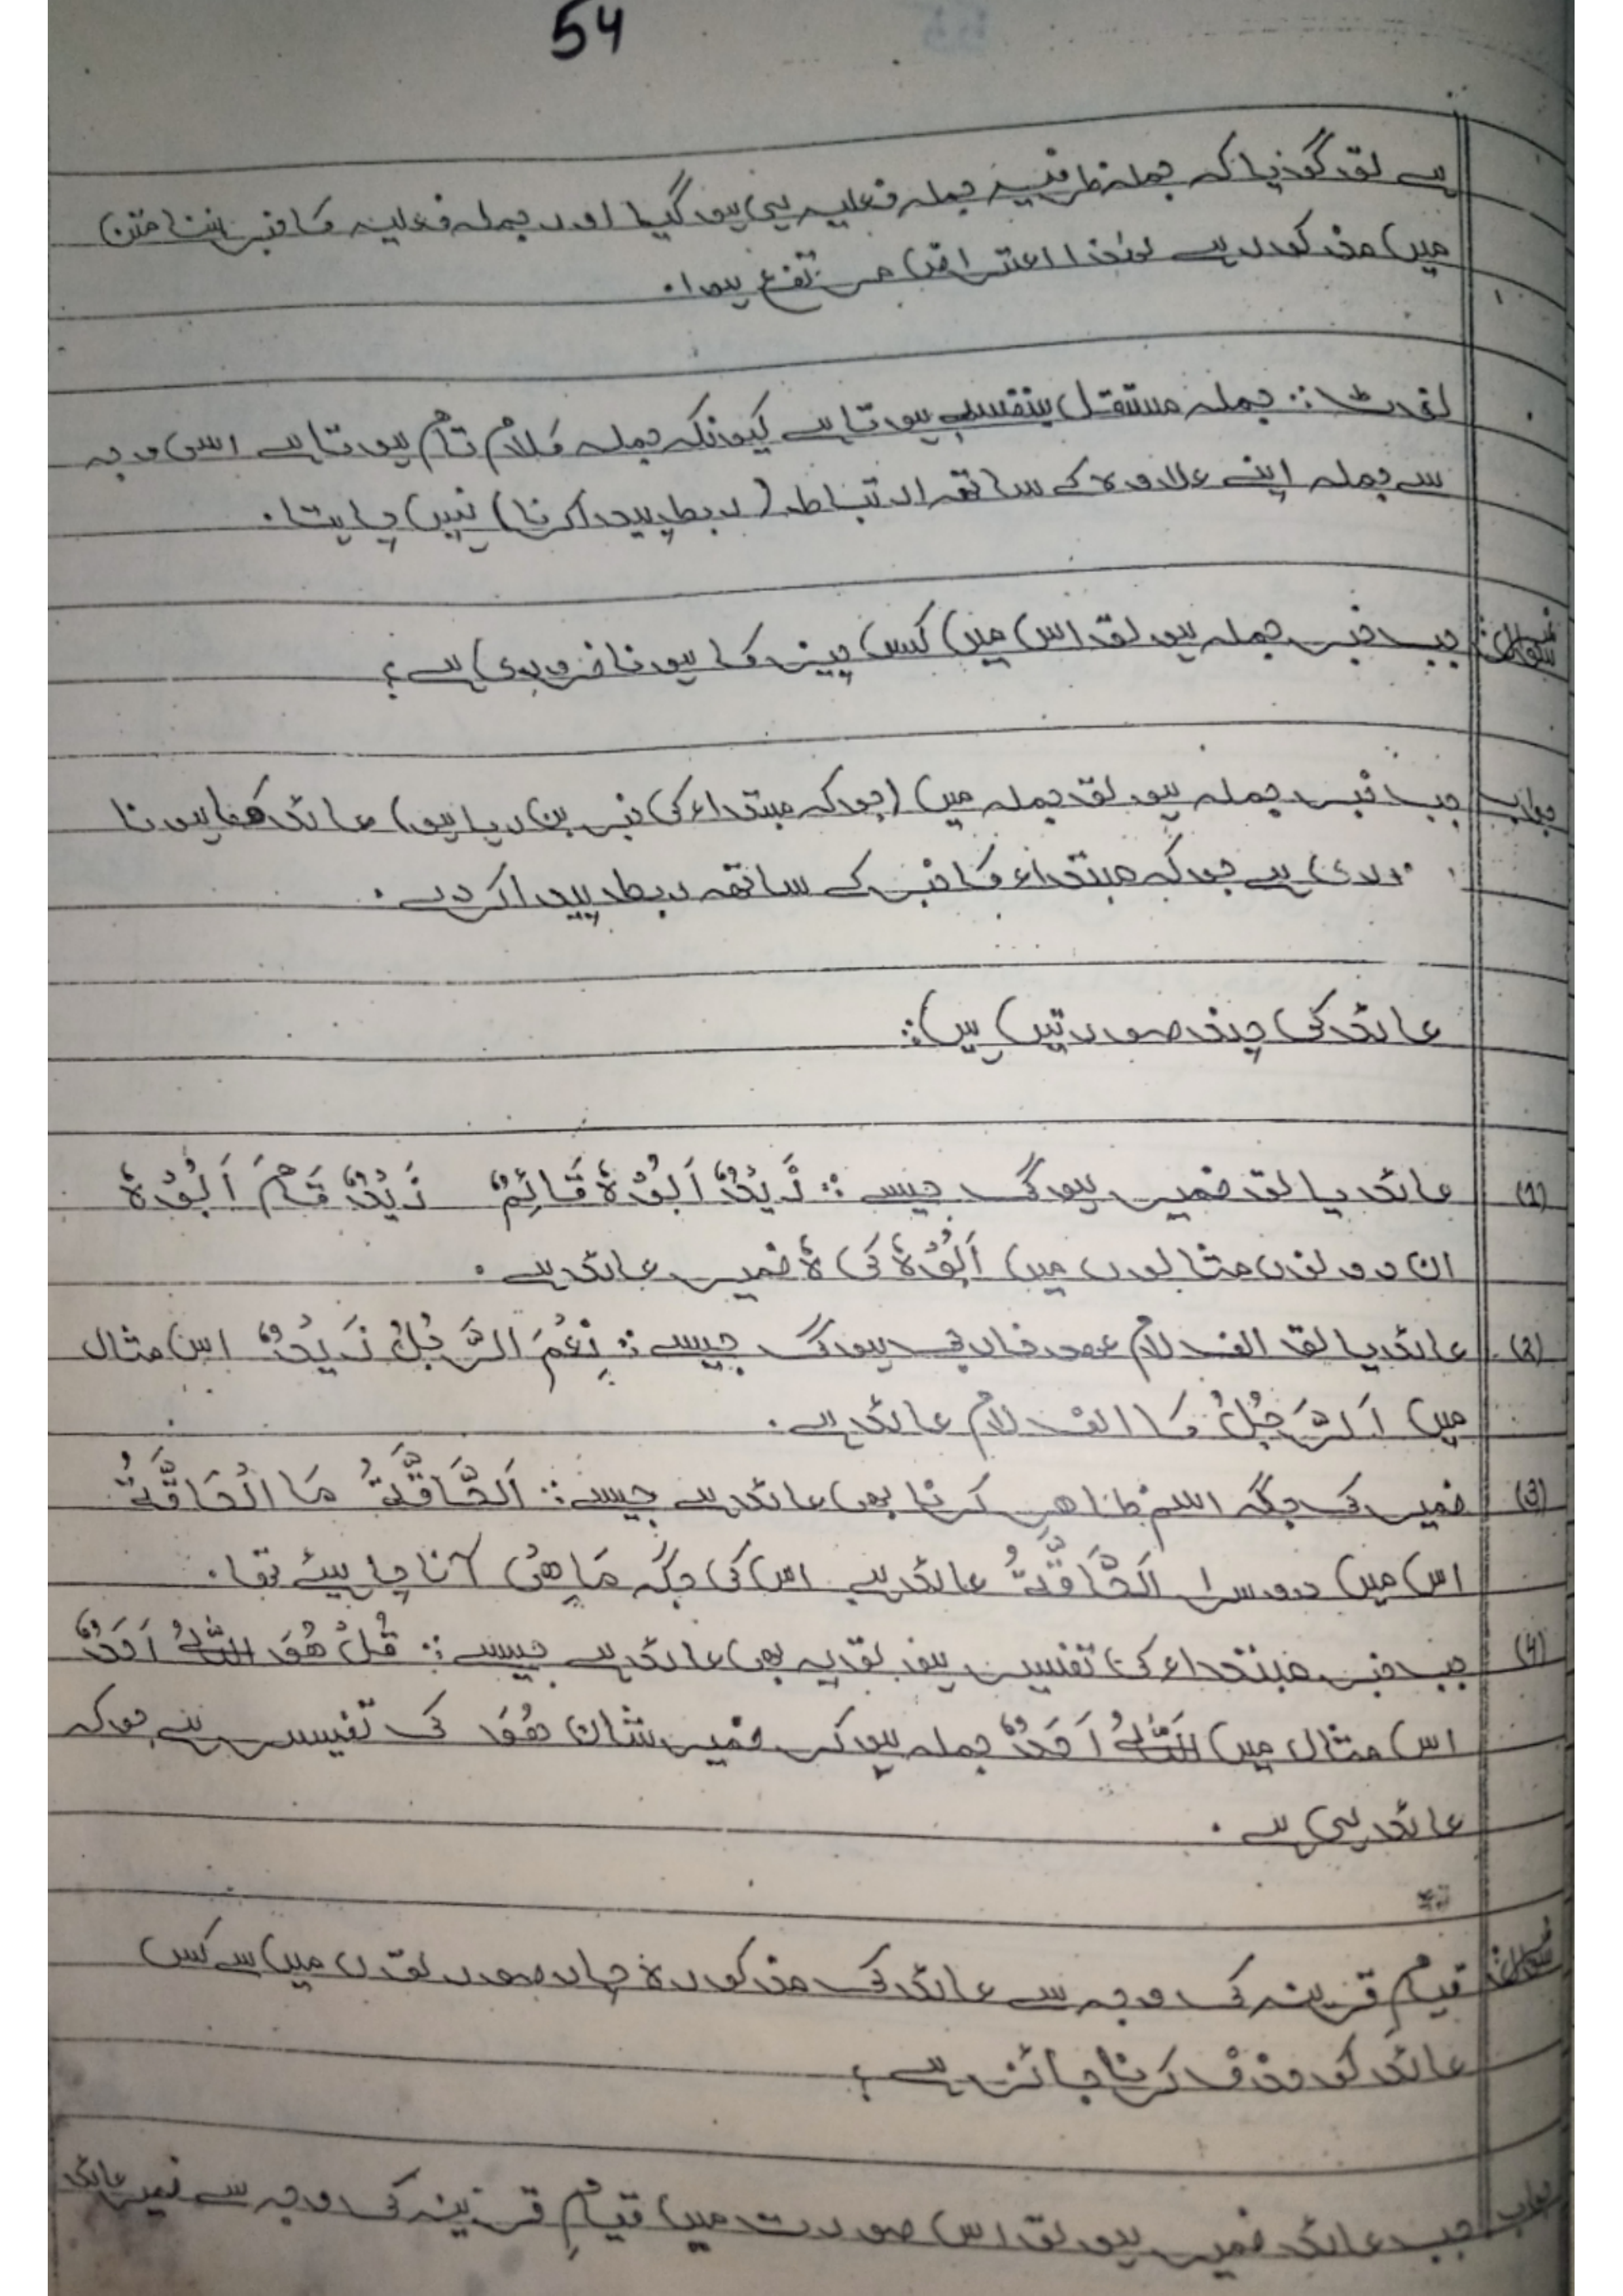 54
ہے تو گویا کہ جملہ ظرفیہ جملہ فعلیہ ہی ہو گیا اور جملہ فعلیہ کا خبر بننا متن
میں مذکور ہے لہٰذا اعتراض مرتفع ہوا۔
نوٹ: جملہ مستقل بنفسہ ہوتا ہے کیونکہ جملہ کلام تام ہوتا ہے اسی وجہ
سے جملہ اپنے علاوہ کے ساتھ ارتباط (ربط پیدا کرنا) نہیں چاہتا۔
سوال: جب خبر جملہ ہو تو اس میں کس چیز کا ہونا ضروری ہے؟
جواب جب خبر جملہ ہو تو جملہ میں (جو کہ مبتداء کی خبر بن رہا ہو) عائد کا ہونا
ضروری ہے جو کہ مبتداء کا خبر کے ساتھ ربط پیدا کر دے۔
عائد کی چند صورتیں ہیں:
(1) عائد یا تو ضمیر ہوگی جیسے: زَیْدٌ اَبُوْہُ قَائِمٌ زَیْدٌ قَامَ اَبُوْہُ
ان دونوں مثالوں میں اَبُوْہُ کی ہُ ضمیر عائد ہے۔
(2) عائد یا تو الف لام عہد خارجی ہوگی جیسے: نِعْمَ الرَّجُلُ زَیْدٌ اس مثال
میں اَلرَّجُلُ کا الف لام عائد ہے۔
(3) ضمیر کی جگہ اسم ظاہر کرنا بھی عائد ہے جیسے: اَلْحَاقَّۃُ مَا الْحَاقَّۃُ
اس میں دوسرا اَلْحَاقَّۃُ عائد ہے اس کی جگہ مَا ھِیَ آنا چاہیئے تھا۔
(4) جب خبر مبتداء کی تفسیر ہو تو یہ بھی عائد ہے جیسے: قُلْ ھُوَ اللّٰہُ اَحَدٌ
اس مثال میں اَللّٰہُ اَحَدٌ جملہ ہو کر ضمیر شان ھُوَ کی تفسیر ہے جو کہ
عائد ہی ہے۔
سوال: قیامِ قرینہ کی وجہ سے عائد کی مذکورہ چار صورتوں میں سے کس
عائد کو حذف کرنا جائز ہے؟
جواب جب عائد ضمیر ہو تو اس صورت میں قیامِ قرینہ کی وجہ سے ضمیر عائد